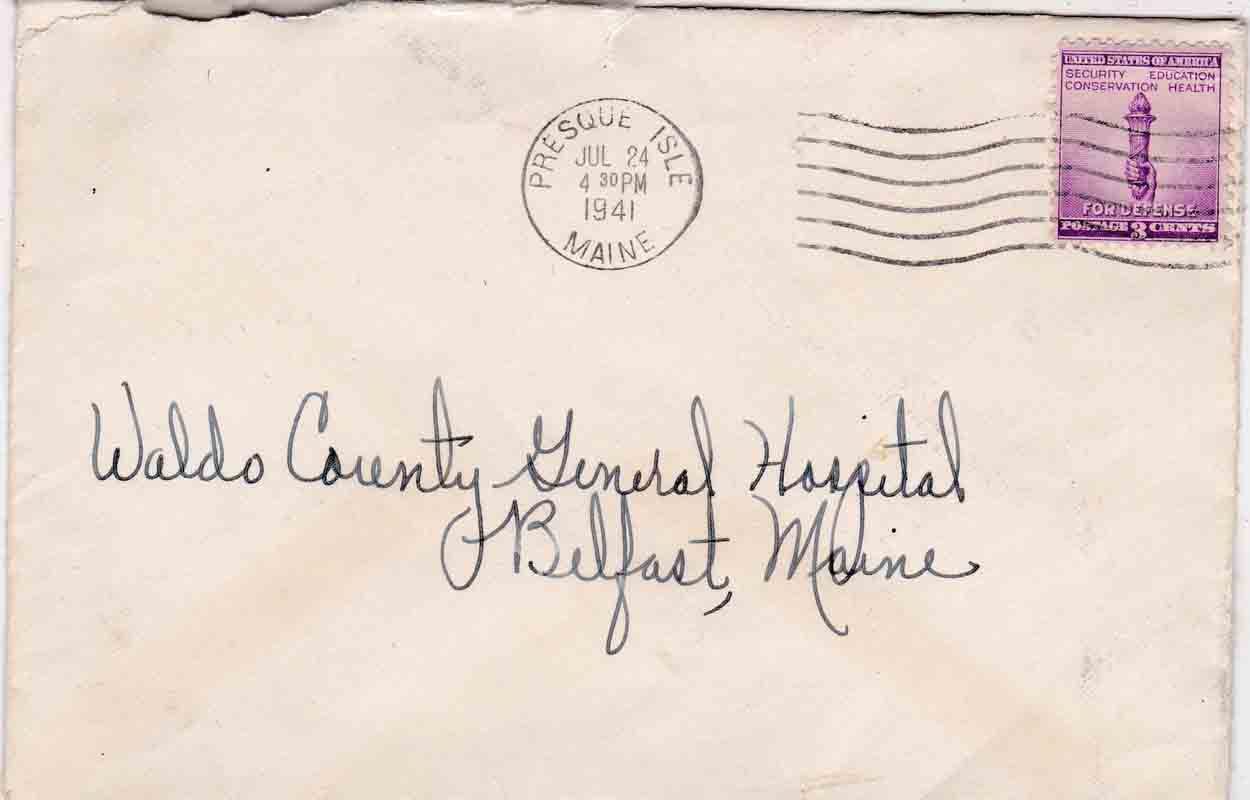 PRESQUE ISLE
JUL 24
4 30 PM
1941
MAINE
UNITED STATES OF AMERICA
SECURITY EDUCATION
CONSERVATION HEALTH
FOR DEFENSE
POSTAGE 3 CENTS
Waldo County General Hospital
Belfast, Maine